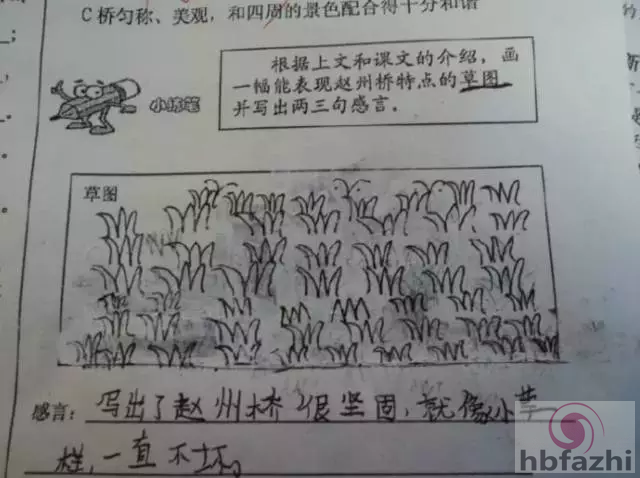 C桥匀称、美观，和四周的景色配合得十分和谐
根据上文和课文的介绍，画
一幅能表现赵州桥特点的草图
并写出两三句感言。
小练笔
草图
感言：写出了赵州桥很坚固，就像小草
样，一直不坏。
hbfazhi